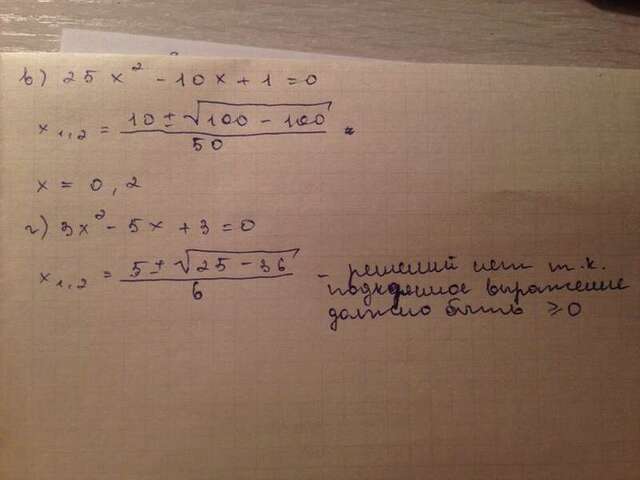 в) 25x² - 10x + 1 = 0
x₁,₂ = (10 ± √(100 - 100)) / 50 =
x = 0,2
г) 3x² - 5x + 3 = 0
x₁,₂ = (5 ± √(25 - 36)) / 6 – решений нет т.к.
подкоренное выражение
должно быть ≥ 0